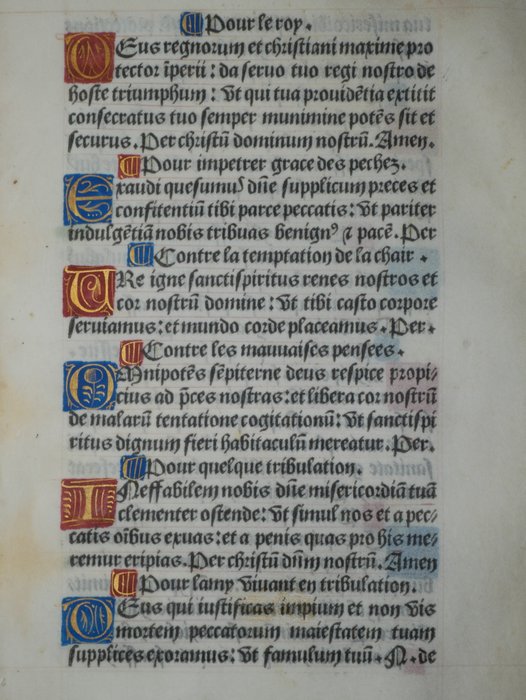 Pour le roy.
DEus regnorum et christiani maxime pro
tector īperii: da seruo tuo regi nostro de
hoste triumphum: Vt qui tua prouidētia extitit
consecratus tuo semper munimine potēs sit et
securus. Per christū dominum nostrū. Amen.
Pour impetrer grace des pechez.
Exaudi quesumuſ dn̄e supplicum preces et
confitentiū tibi parce peccatis: Vt pariter
indulgētiā nobis tribuas benignꝰ ⁊ pacē. Per
Contre la temptation de la chair.
URe igne sanctispiritus renes nostros et
cor nostrū domine: Vt tibi casto corpore
seruiamus: et mundo corde placeamus. Per.
Contre les mauuaises pensees.
OMnipotēs sēpiterne deus respice propi⸗
cius ad p̄ces nostras: et libera cor nostrū
de malarū tentatione cogitationū: Vt sanctispi
ritus dignum fieri habitaculū mereatur. Per.
Pour quelque tribulation.
INeffabilem nobis dn̄e misericordiā tuā
clementer ostende: Vt simul nos et a pec⸗
catis oībus exuas: et a penis quas pro his me⸗
remur eripias. Per christū dn̄m nostrū. Amen
Pour lamy viuant en tribulation.
DEus qui iustificas impium et non vis
mortem peccatorum maiestatem tuam
supplices exoramus: Vt famulum tuū. N. de